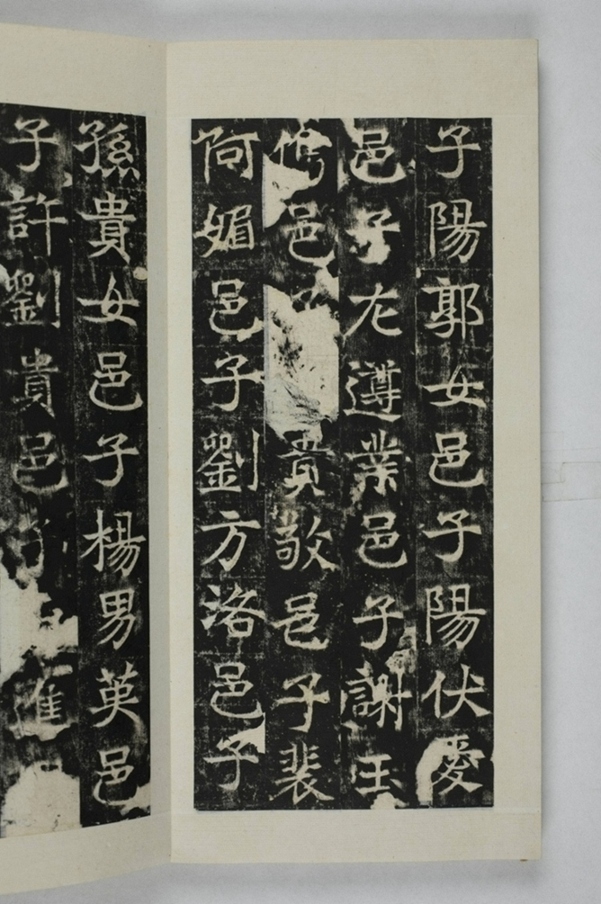 子陽郭女邑子陽伏愛
邑子尨遵業邑子謝玉
邑子貴敬邑子裴
阿媚邑子劉方洛邑子
孫貴女邑子楊男英邑
子許劉貴邑子進